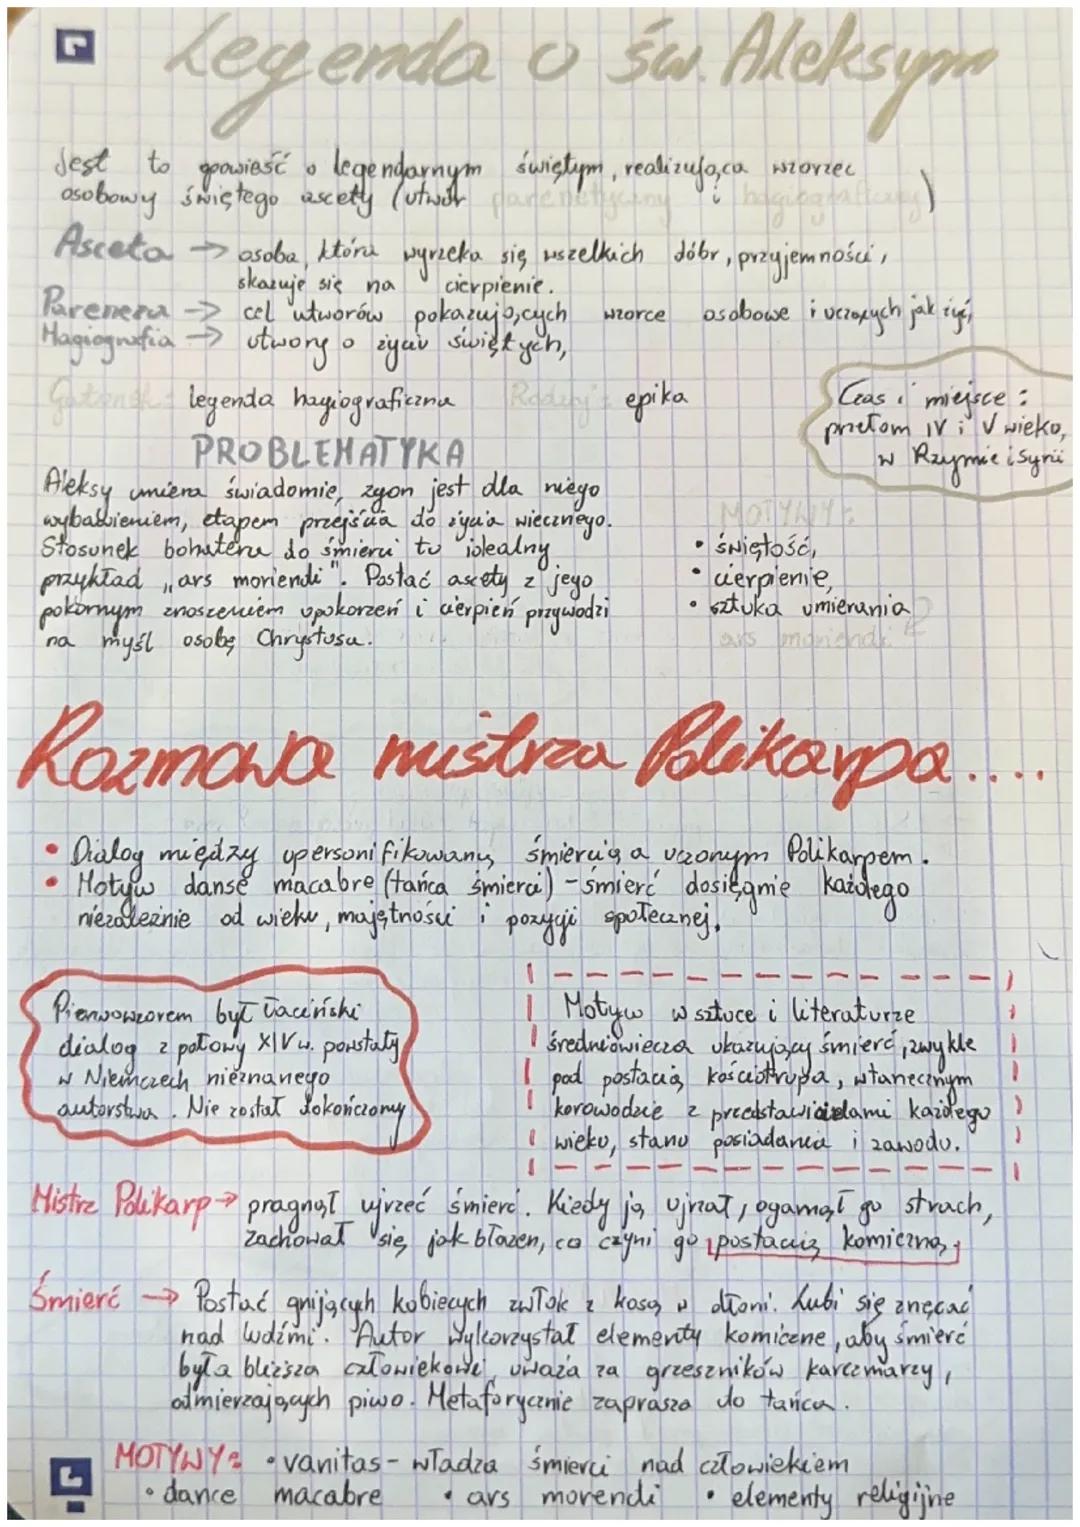 Legenda o św. Aleksym
Jest to opowieść o legendarnym świętym, realizująca wzorzec
osobowy świętego ascety (utwór parenetyczny i hagiograficzny)
Asceta → osoba, która wyrzeka się wszelkich dóbr, przyjemności,
skazuje się na cierpienie.
Pareneza → cel utworów pokazujących wzorce osobowe i uczących jak żyć,
Hagiografia → utwory o życiu świętych,
Gatunek: legenda hagiograficzna Rodzaj: epika
Czas i miejsce:
przełom IV i V wieku,
w Rzymie i Syrii
PROBLEMATYKA
Aleksy umiera świadomie, zgon jest dla niego
wybawieniem, etapem przejścia do życia wiecznego.
Stosunek bohatera do śmierci to idealny
przykład "ars moriendi". Postać ascety z jego
pokornym znoszeniem upokorzeń i cierpień przywodzi
na myśl osobę Chrystusa.
MOTYWY:
• świętość,
• cierpienie,
• sztuka umierania
ars moriendi
Rozmowa mistrza Polikarpa....
• Dialog między upersonifikowaną śmiercią a uczonym Polikarpem.
• Motyw danse macabre (tańca śmierci) - śmierć dosięgnie każdego
niezależnie od wieku, majętności i pozycji społecznej.
Pierwowzorem był łaciński
dialog z połowy XIV w. powstały
w Niemczech nieznanego
autorstwa. Nie został dokończony
Motyw w sztuce i literaturze
średniowiecza ukazujący śmierć, zwykle
pod postacią kościotrupa, w tanecznym
korowodzie z przedstawicielami każdego
wieku, stanu posiadania i zawodu.
Mistrz Polikarp → pragnął ujrzeć śmierć. Kiedy ją ujrzał, ogarnął go strach,
zachował się jak błazen, co czyni go postacią komiczną,
Śmierć → Postać gnijących kobiecych zwłok z kosą w dłoni. Lubi się znęcać
nad ludźmi. Autor wykorzystał elementy komiczne, aby śmierć
była bliższa człowiekowi, uważa za grzeszników karczmarzy,
odmierzających piwo. Metaforycznie zaprasza do tańca.
MOTYWY: • vanitas - władza śmierci nad człowiekiem
• dance macabre • ars morendi • elementy religijne